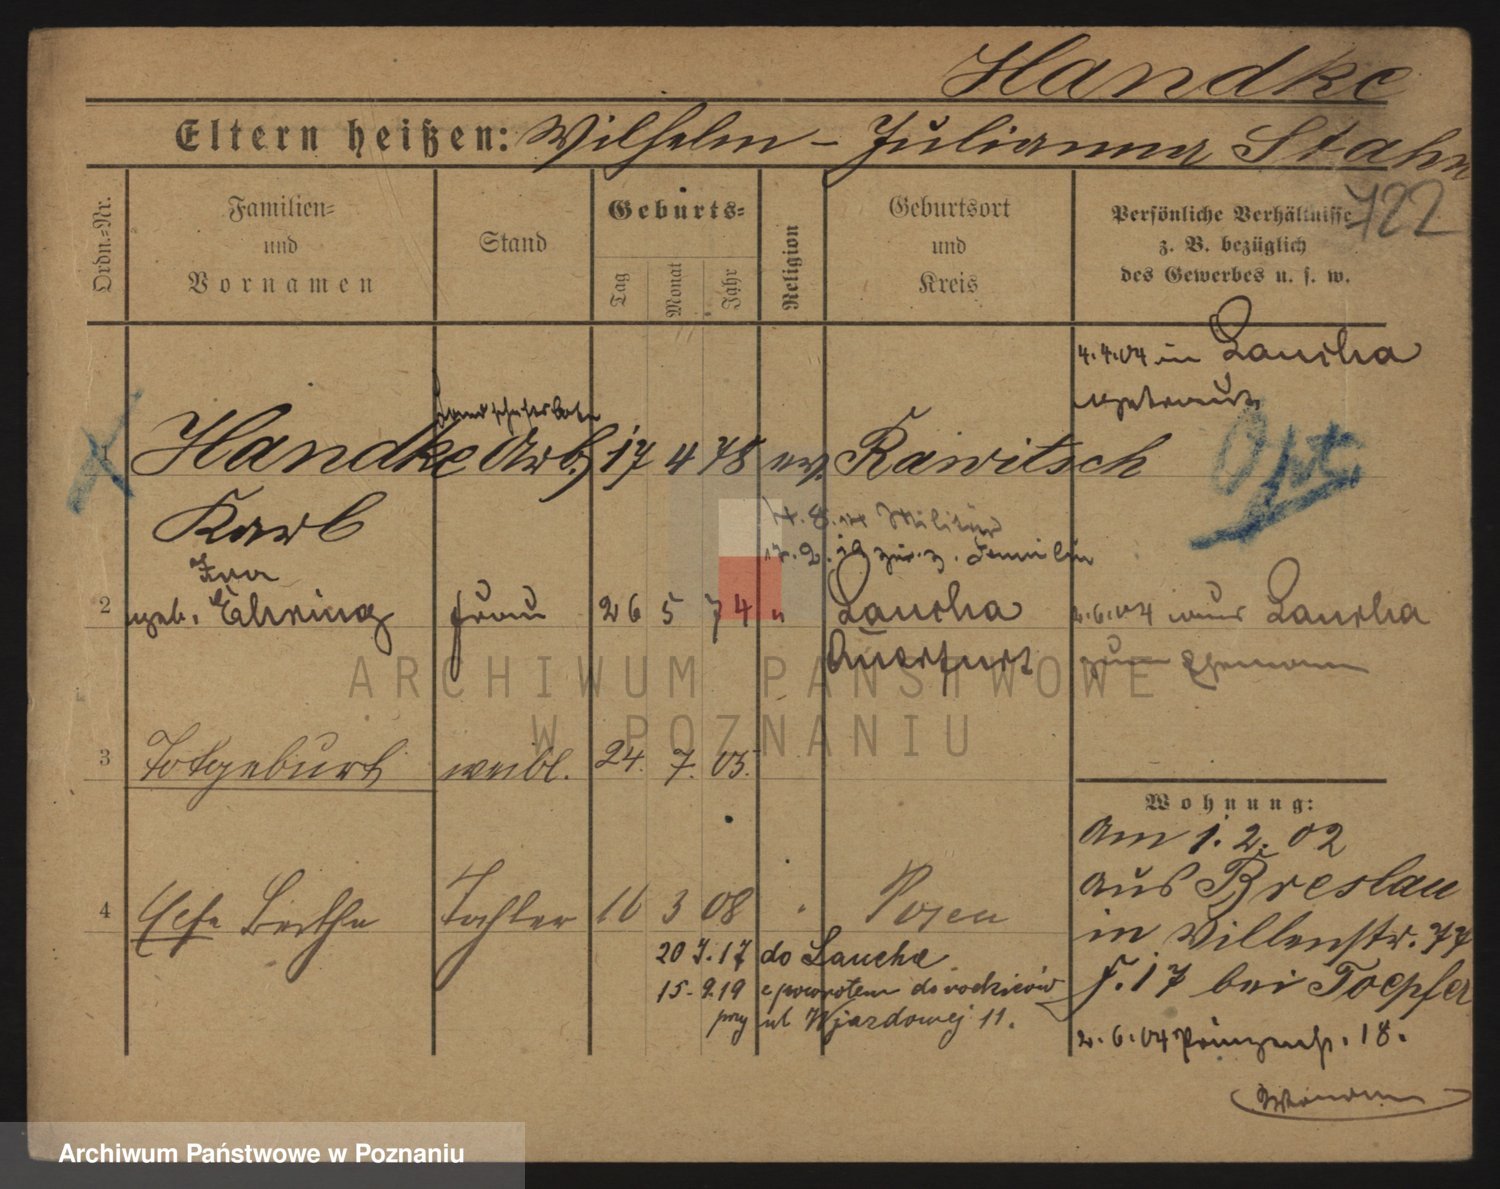 Handke
Eltern heißen: Wilhelm – Julianna Stahn
722
Ordn.-Nr.
Familien-
und
Vornamen
Stand
Geburts-
Tag
Monat
Jahr
Religion
Geburtsort
und
Kreis
Persönliche Verhältnisse
z. B. bezüglich
des Gewerbes u. s. w.
4.4.04 in Laucha
getraut
1 Handke Arb. 17 4 78 ev. Rawitsch
Opt.
Karl
Militär
zur. z. Familie
Ida
2 geb. Ehring Frau 26 5 74 " Laucha
Querfurt
2.6.04 aus Laucha
zum Ehemann
3 Totgeburt weibl. 24. 7. 05.
4 Else Berthe Tochter 16 3 08 " Posen
20 7. 17 do Laucha
15. 9. 19 z powrotem do rodziców
przy ul Wjazdowej 11.
Wohnung:
Am 1. 2. 02
aus Breslau
in Villenstr. 77
F. 17 bei Toepfer
2.6.04 Prinzenstr. 18.
ARCHIWUM PAŃSTWOWE
W POZNANIU
Archiwum Państwowe w Poznaniu